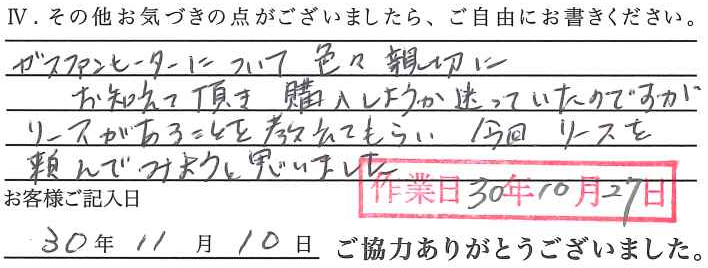 Ⅳ．その他お気づきの点がございましたら、ご自由にお書きください。
ガスファンヒーターについて 色々 親切に
お知えて頂き 購入しようか迷っていたのですが
リースがあることを教えてもらい 今回 リースを
頼んでみようと思いました
作業日30年10月27日
お客様ご記入日
30年 11月 10日 ご協力ありがとうございました。